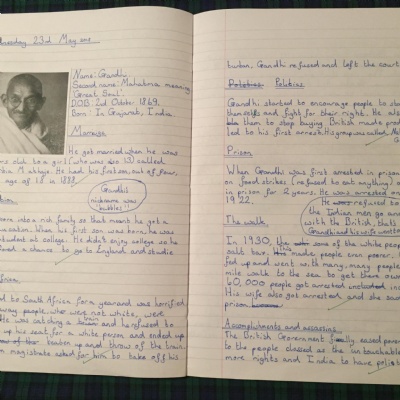 nesday 23rd May
Name: Gandhi
Second name: Mahatma meaning
'Great Soul'.
D.O.B: 2nd October 1869.
Born: In Gujarat, India.
Marriage
He got married when he was
to a girl (who was also 13) called
He had his first son, out of four,
age of 18 in 1888.
Gandhi's
nickname was
bubbles!
born into a rich family so that meant he got a
education. When his first son was born, he was
student at college. He didn't enjoy college so he
a chance to go to England and studie
Africa
to South Africa for a year and was horrified
way people who were not white, were
He was catching a train and he refused to
up his seat for a white person and ended up
beaten up and throw of the train.
magistrate asked for him to take off his
turban, Gandhi refused and left the court
Politics
Gandhi started to encourage people to sta
themselves and fight for their right. He als
them to stop buying British made prod
led to his first arrest. His group was called
Prison
When Grandhi was first arrested in prison
on food strikes (refused to eat anything)
in prison for 2 years. He was arrested
1922.
He refused to
the Indian men go
with the British, that
Gandhi and his wife went to
The walk
In 1930, some of the white people
salt tax. This made people even poorer.
fed up and went with many, many people
mile walk to the sea to get there own
60,000 people got arrested included
His wife also got arrested and she
prison
Accomplishments and
The British Government finally eased
to the people classed as the untouchable
more rights and India to have polit